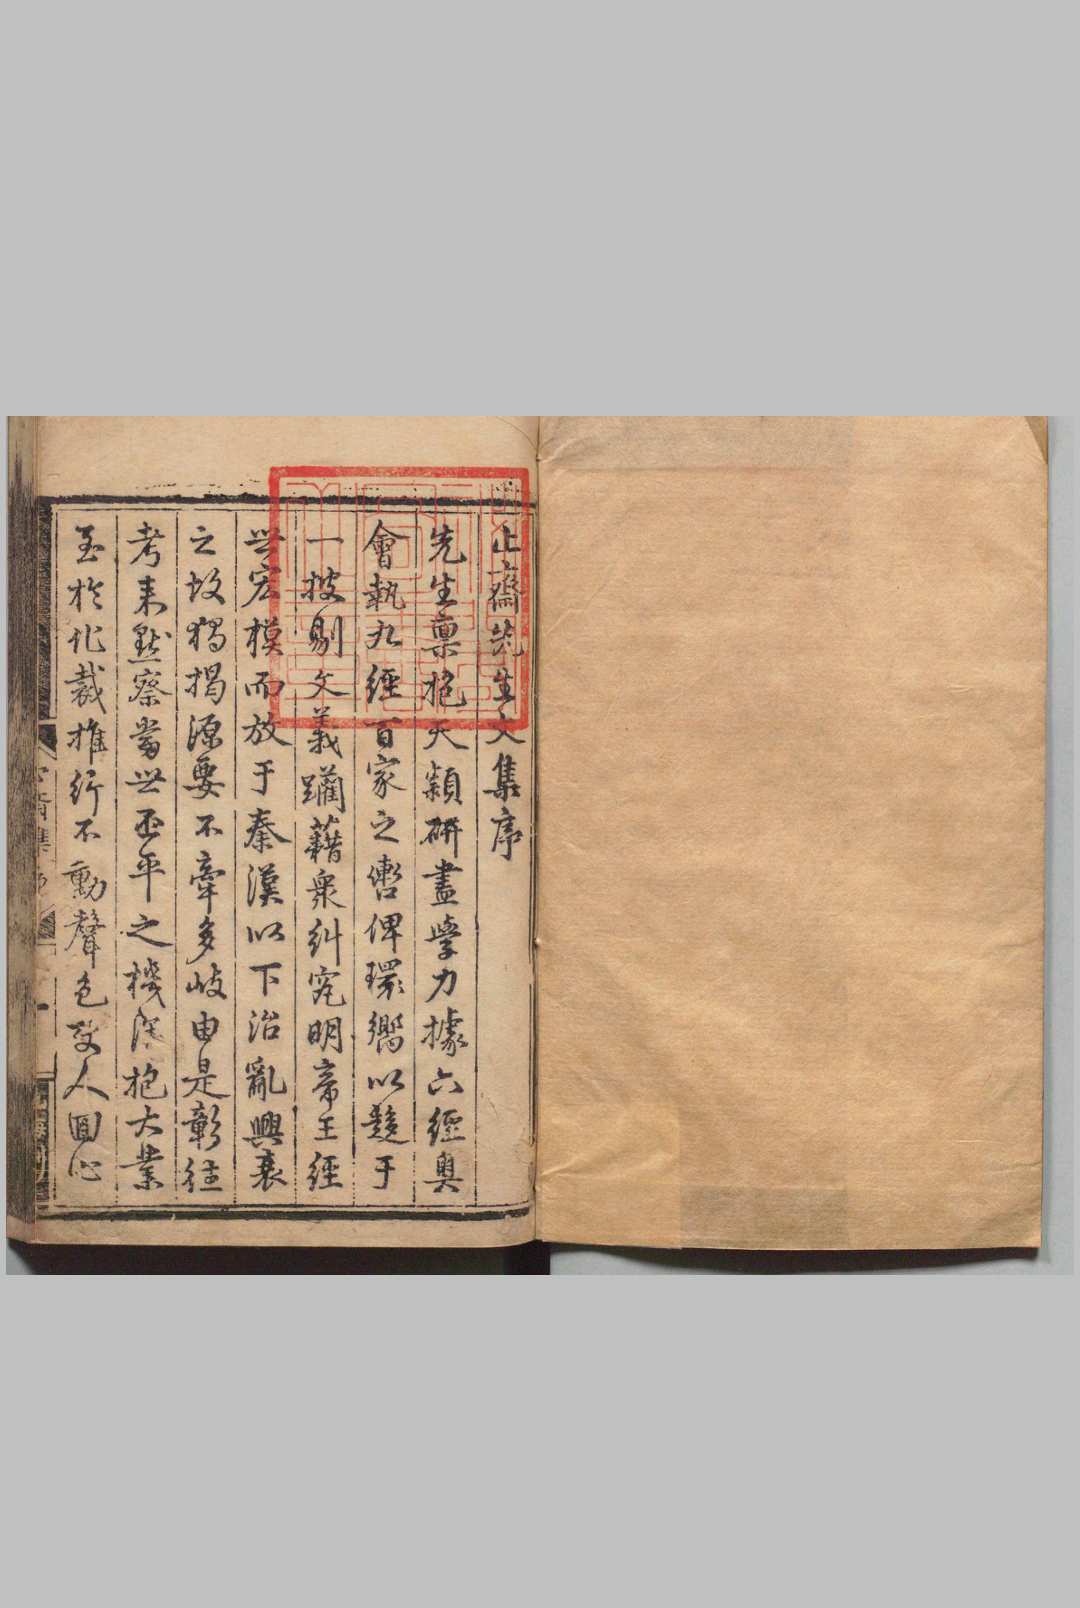 止齋先生文集序
先生稟抱天穎研盡學力據六經奧
會執九經百家之轡俾環嚮以趍于
一披剔文義躪藉衆糾究明帝王經
世宏模而放于秦漢以下治亂興衰
之故獨揭源要不牽多歧由是彰往
考来默察當世丕平之機深抱大業
至於化裁推行不動聲色致人囬心